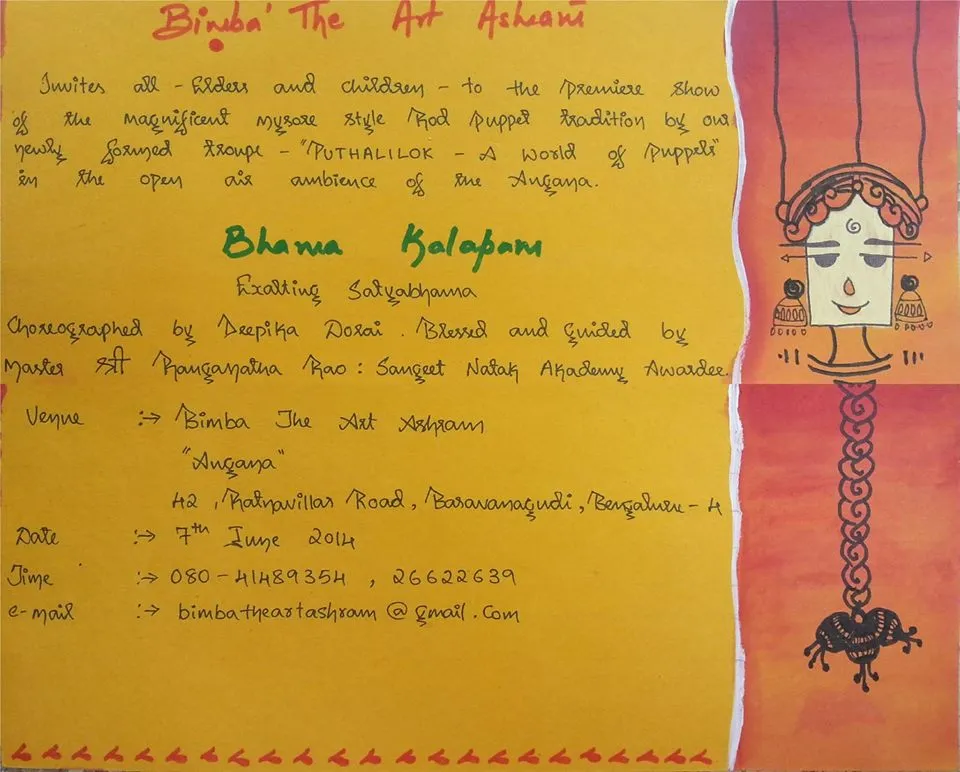 Bimba' The Art Ashram
Invites all - Elders and children - to the premiere show
of the magnificent mysore style Rod puppet tradition by our
newly formed troupe - "PUTHALILOK - A world of puppets"
in the open air ambience of the Angana.
Bhama Kalapam
Exalting Satyabhama
Choreographed by Deepika Dorai . Blessed and guided by
Master श्री Ranganatha Rao : Sangeet Natak Akademy Awardee.
Venue :-> Bimba The Art Ashram
"Angana"
42 , Ratnavillas Road , Basavanagudi , Bengaluru - 4
Date :-> 7th June 2014
Time :-> 080 - 41489354 , 26622639
e-mail :-> bimbatheartashram @ gmail . Com